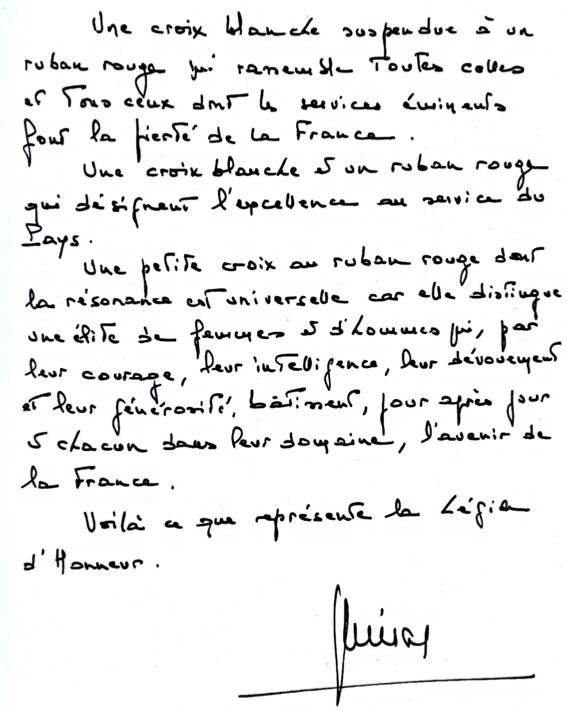 Une croix blanche suspendue à un
ruban rouge qui rassemble Toutes celles
et Tous ceux dont les services éminents
font la fierté de la France.
Une croix blanche et un ruban rouge
qui désignent l'excellence au service du
Pays.
Une petite croix au ruban rouge dont
la résonance est universelle car elle distingue
une élite de femmes et d'hommes qui, par
leur courage, leur intelligence, leur dévouement
et leur générosité, bâtissent, jour après jour
et chacun dans leur domaine, l'avenir de
la France.
Voilà ce que représente la Légion
d'Honneur.